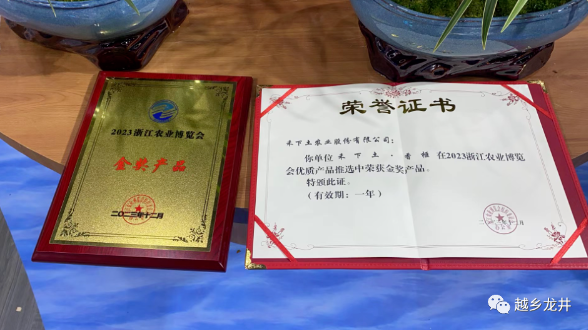 2023浙江农业博览会
金奖产品
二〇二三年十二月
荣誉证书
禾下土农业股份有限公司：
你单位禾下土·香榧在2023浙江农业博览
会优质产品推选中荣获金奖产品。
特颁此证。
（有效期：一年）
月
越乡龙井